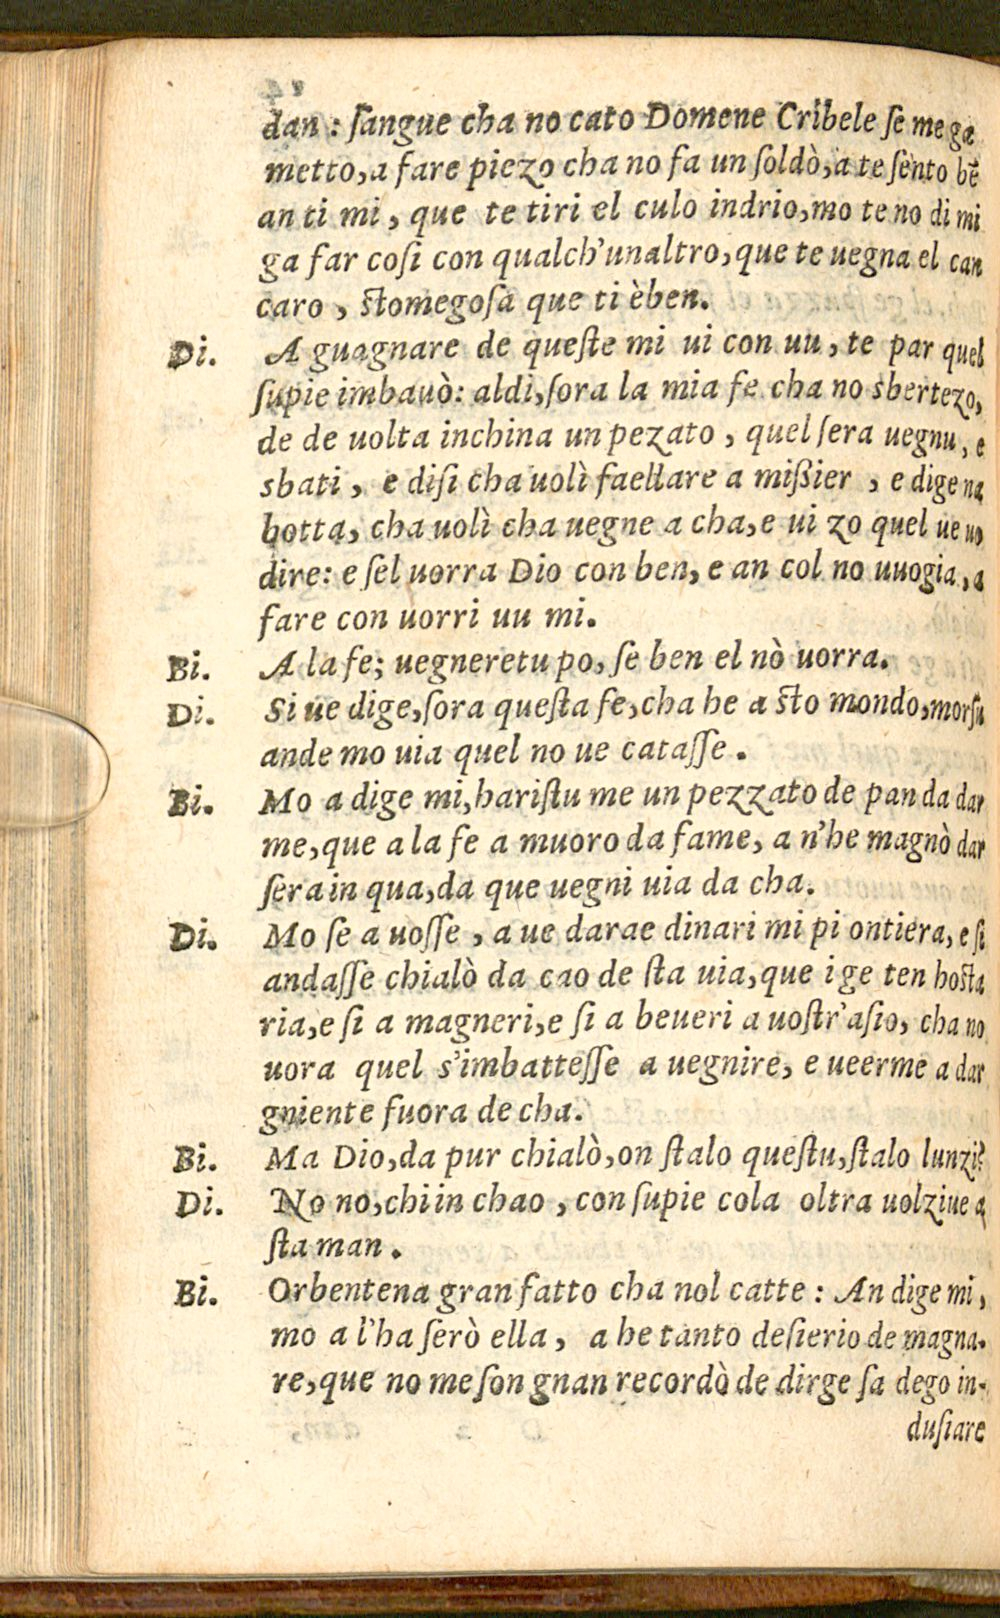 dan : ſangue cha no cato Domene Cribele ſe me ga
metto, a fare piezo cha no fa un ſoldò, a te ſento bē
an ti mi, que te tiri el culo indrio, mo te no di mi
ga far coſi con qualch'unaltro, que te uegna el can
caro, ſtomegoſa que ti èben.
Di. A guagnare de queſte mi ui con uu, te par quel
ſupie imbauò: aldi, ſora la mia fe cha no sbertezo,
de de uolta inchina un pezato, quel ſera uegnu, e
sbati, e diſi cha uolì faellare a mißier, e dige na
botta, cha uolì cha uegne a cha, e ui zo quel ue uo
dire: e ſel uorra Dio con ben, e an col no uuogia, a
fare con uorri uu mi.
Bi. A la fe; uegneretu po, ſe ben el nò uorra.
Di. Si ue dige, ſora queſta fe, cha he a ſto mondo, morſu
ande mo uia quel no ue cataſſe.
Bi. Mo a dige mi, hariſtu me un pezzato de pan da dar
me, que a la fe a muoro da fame, a n'he magnò dar
ſera in qua, da que uegni uia da cha.
Di. Mo ſe a uoſſe, a ue darae dinari mi pi ontiera, e ſi
andaſſe chialò da cao de ſta uia, que i ge ten hoſta
ria, e ſi a magneri, e ſi a beueri a uoſtr'aſio, cha no
uora quel s'imbatteſſe a uegnire, e ueerme a dar
gniente fuora de cha.
Bi. Ma Dio, da pur chialò, on ſtalo queſtu, ſtalo lunzi?
Di. No no, chi in chao, con ſupie cola oltra uolziue a
ſta man.
Bi. Orbentena gran fatto cha nol catte : An dige mi,
mo a l'ha ſerò ella, a he tanto deſierio de magna-
re, que no me ſon gnan recordò de dirge ſa dego in-
duſiare